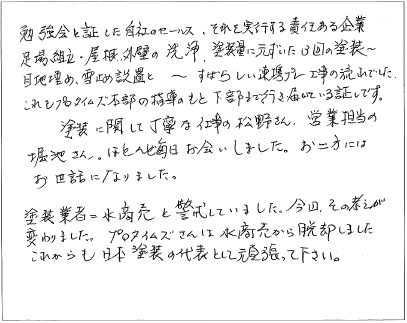 勉強会と証した自社のセールス、それを実行する責任ある企業
足場組立・屋根・外壁の洗浄、塗装量に元ずいた3回の塗装〜
目地埋め、雪止め設置と 〜 すばらしい連携プレー工事の流れでした。
これもプロタイムズ本部の指導のもと下部まで行き届いている証しです。
塗装に関して丁寧な仕事の松野さん、営業担当の
堀池さん。ほとんど毎日お会いしました。お二方には
お世話になりました。
塗装業者=水商売と警戒していました。今回、その考えが
変わりました。プロタイムズさんは水商売から脱却しました
これからも日本塗装の代表として頑張って下さい。